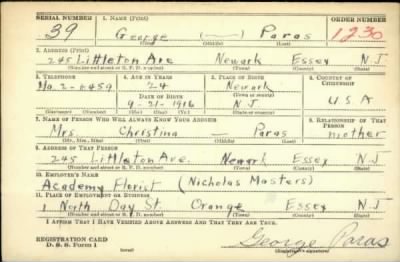 SERIAL NUMBER 1. NAME (Print) ORDER NUMBER
39 George (—) Paras 1230
(First) (Middle) (Last)
2. ADDRESS (Print)
245 Littleton Ave Newark Essex N J
(Number and street or R. F. D. number) (Town) (County) (State)
3. TELEPHONE 4. AGE IN YEARS 5. PLACE OF BIRTH 6. COUNTRY OF CITIZENSHIP
24 Newark
DATE OF BIRTH (Town or county)
9-21-1916 N J U S A
(Mo.) (Day) (Yr.) (State or country)
7. NAME OF PERSON WHO WILL ALWAYS KNOW YOUR ADDRESS 8. RELATIONSHIP OF THAT PERSON
Mrs. Christina — Paras mother
(Mr., Mrs., Miss) (First) (Middle) (Last)
9. ADDRESS OF THAT PERSON
245 Littleton Ave. Newark Essex N J
(Number and street or R. F. D. number) (Town) (County) (State)
10. EMPLOYER'S NAME
Academy Florist (Nicholas Masters)
11. PLACE OF EMPLOYMENT OR BUSINESS
1 North Day St. Orange Essex N J
(Number and street or R. F. D. number) (Town) (County) (State)
I AFFIRM THAT I HAVE VERIFIED ABOVE ANSWERS AND THAT THEY ARE TRUE.
REGISTRATION CARD George Paras
D. S. S. Form 1 (over) (Registrant's signature)